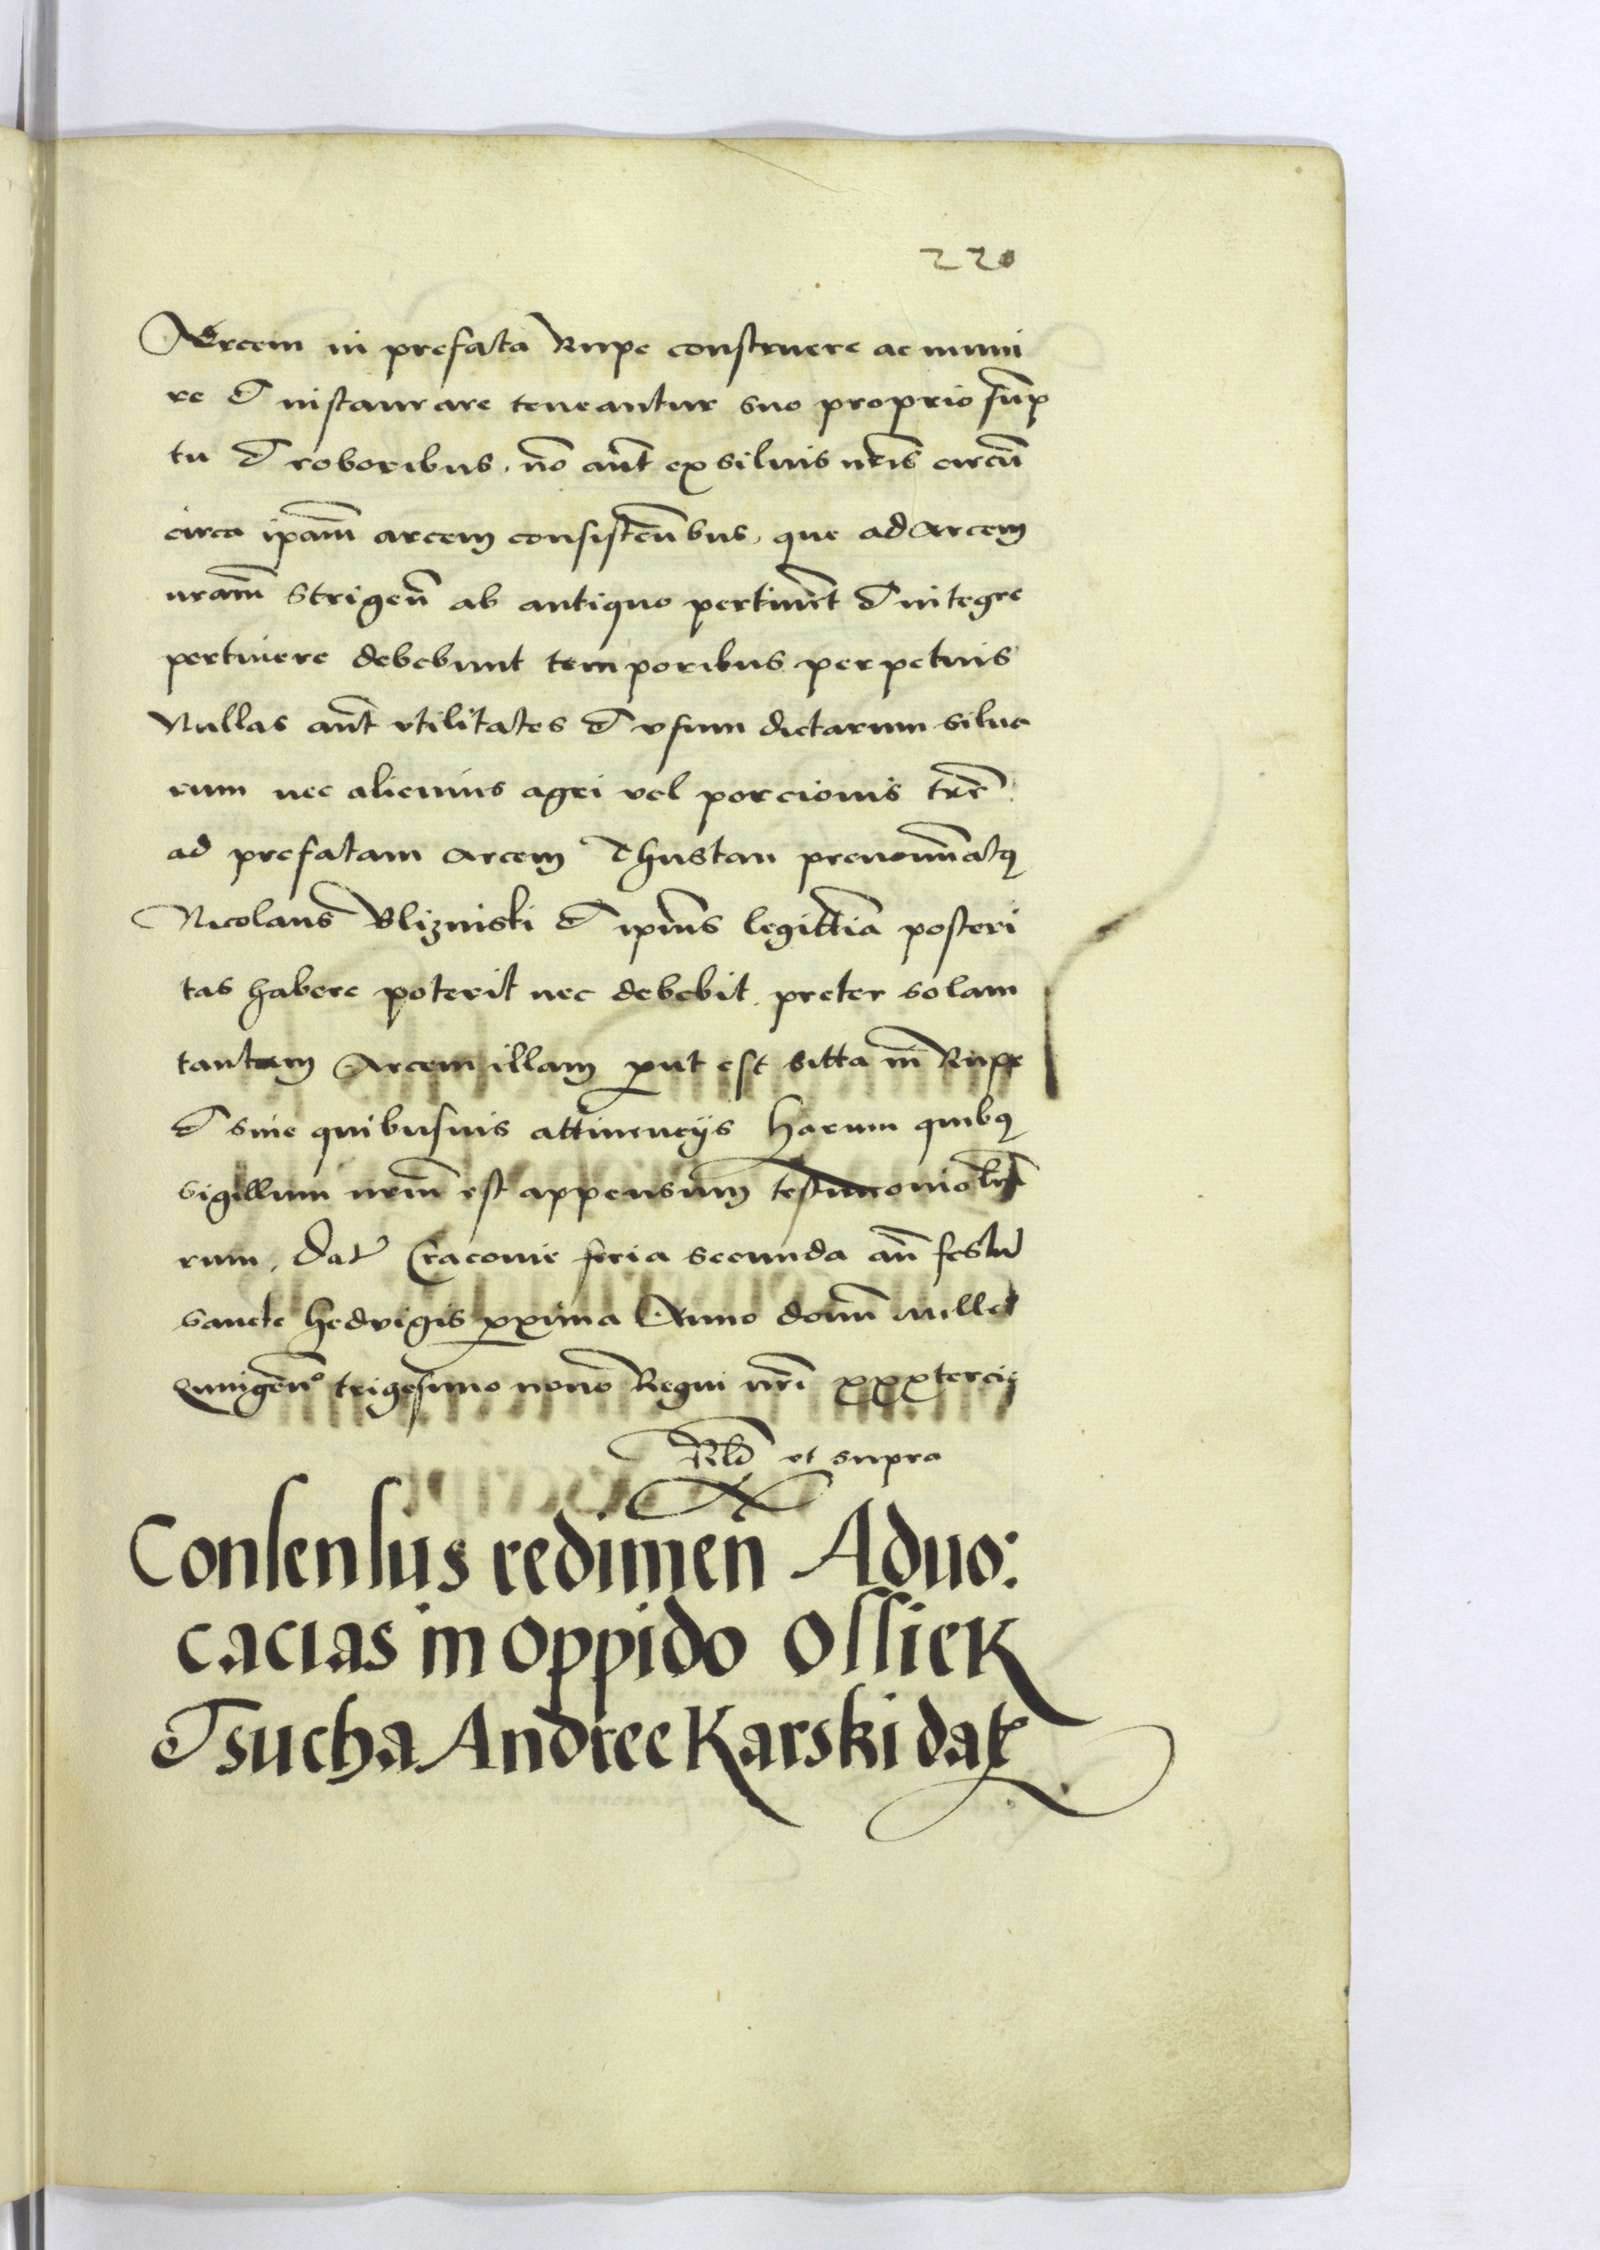 220
Arcem in prefata Rupe construere ac muni
re et instaurare teneantur suo proprio sūp
tu et roboribus, nō aūt ex siluis nr̄is circū
circa ip̄am arcem consisten̄bus, que ad Arcem
nr̄am Strigen̄ ab antiquo pertinēt et integre
pertinere debebunt temporibus perpetuis
Nullas aūt vtilitates et vsum dictarum silua
rum nec alicuius agri vel porcionis tr̄e
ad prefatam Arcem Thustan prenominatꝰ
Nicolaus Blizinski et ip̄ius legittīa posteri
tas habere poterit nec debebit preter solam
tantum Arcem illam ꝓut est sitta in Rupe
et sine quibusuis attinencijs Harum quibꝰ
sigillum nr̄m est appensum testimonio lr̄a
rum. Dat Cracovie feria secunda an̄ festū
sancte Hedvigis ꝓxima Anno domī Millō
Quingenͦ trigesimo nono Regni nr̄i xxxtercio
Rlō vt supra
Consensus redimen Aduo:
cacias in oppido Ossiek
et sucha Andree Karski dat